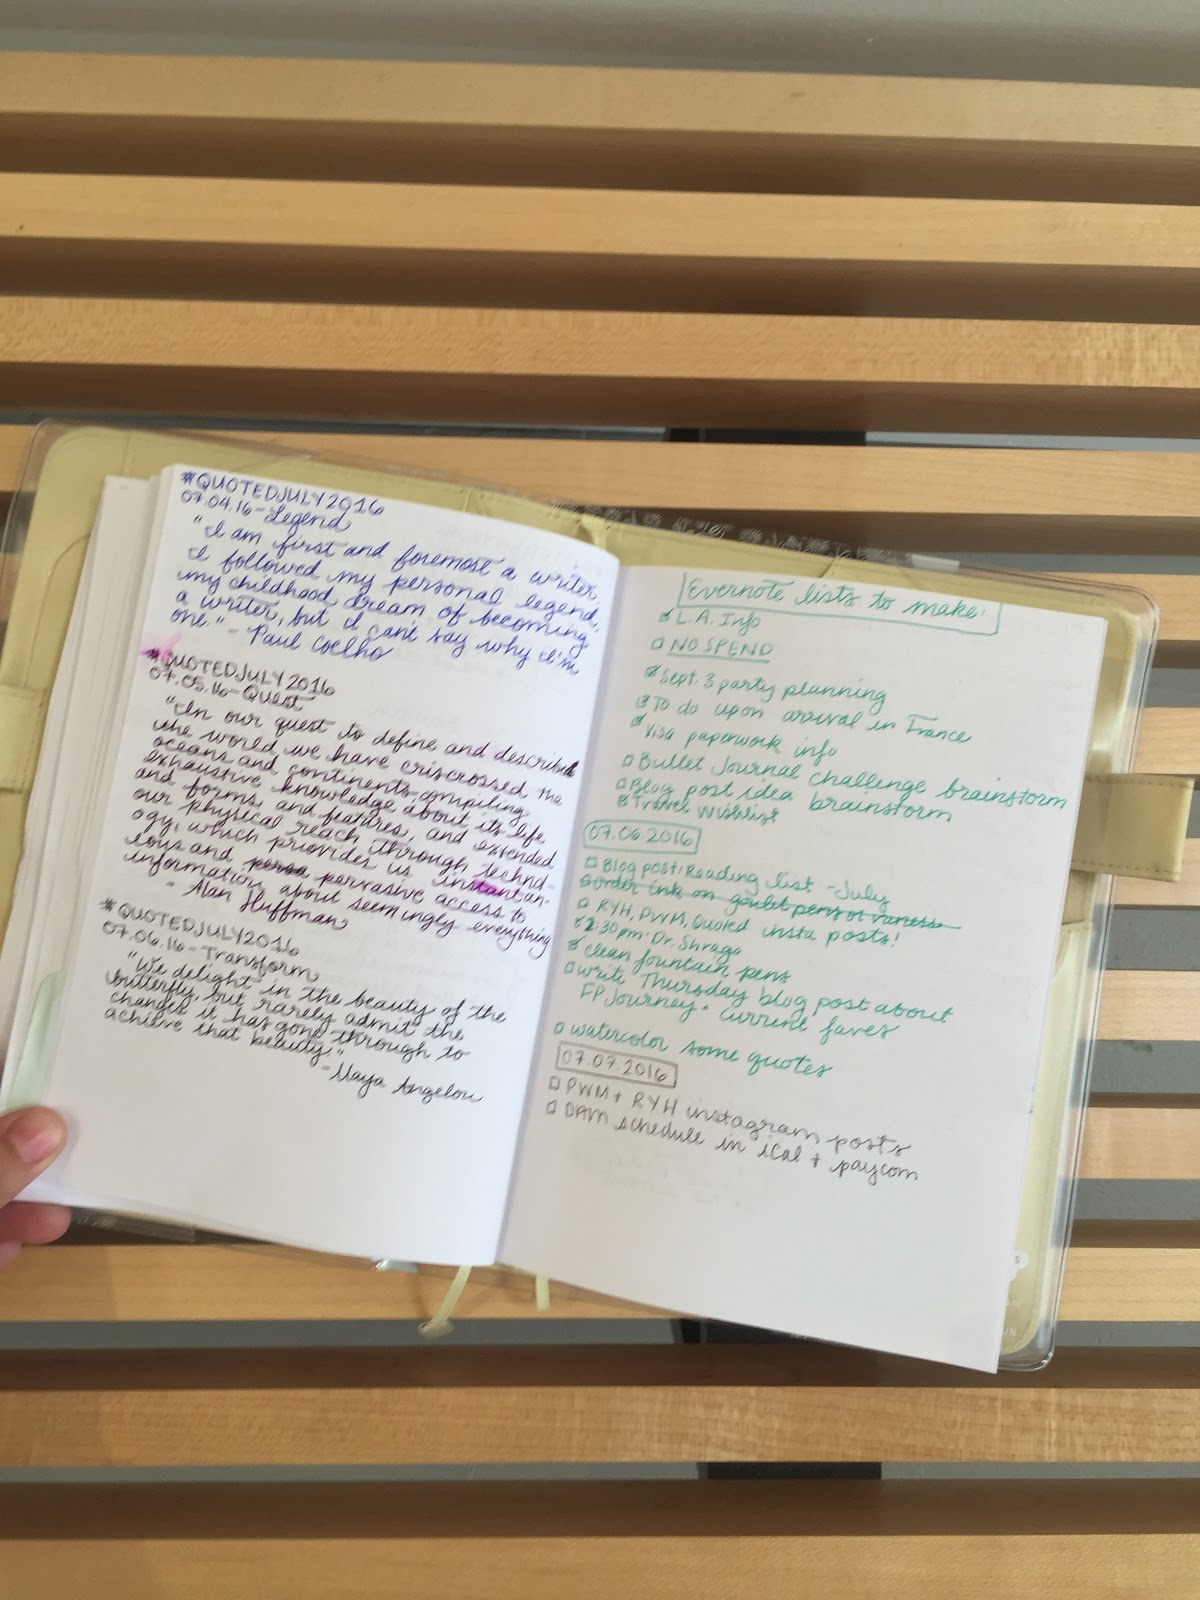 #QUOTEDJULY2016
07.04.16-Legend
"I am first and foremost a writer.
I followed my personal legend,
my childhood dream of becoming
a writer, but I can't say why I'm
one." - Paul Coelho
#QUOTEDJULY2016
07.05.16-Quest
"In our quest to define and describe
the world we have criscrossed the
oceans and continents compiling
exhaustive knowledge about its life
and forms, and features, and extended
our physical reach through technol-
ogy, which provides us instantan-
eous and pervasive access to
information about seemingly everything
- Alan Huffman
#QUOTEDJULY2016
07.06.16-Transform
"We delight in the beauty of the
butterfly, but rarely admit the
changes it has gone through to
achieve that beauty."
-Maya Angelou
Evernote lists to make:
L.A. Info
NO SPEND
Sept. 3 party planning
To do upon arrival in France
Visa paperwork info
Bullet Journal Challenge brainstorm
Blog post idea brainstorm
Travel Wishlist
07.06.2016
Blog post: Reading list - July
Order ink on goulet pens or vanness
RYH, PWM, Quoted insta posts!
2:30pm: Dr. Shrago
clean fountain pens
write Thursday blog post about
FP Journey - Current faves
watercolor some quotes
07.07.2016
PWM + RYH instagram posts
DAM schedule in iCal + paycom